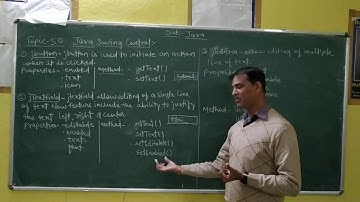 Sub:- Java
Topic-50 Java Swing Control:-
① Jbutton:- Jbutton is used to initiate an action
when it is clicked.
Properties - enabled
- text
- icon
Method - getText()
- setText()
② Jtextfield:- Jtextfield allow editing of a single line
of text. New feature include the ability to justify
the text left, right & center.
Properties - editable
- enabled
- text
- font
Method - getText()
- setText()
- setEditable()
- setEnabled()
- allow editing of multiple
line of text.
Properties
Method -